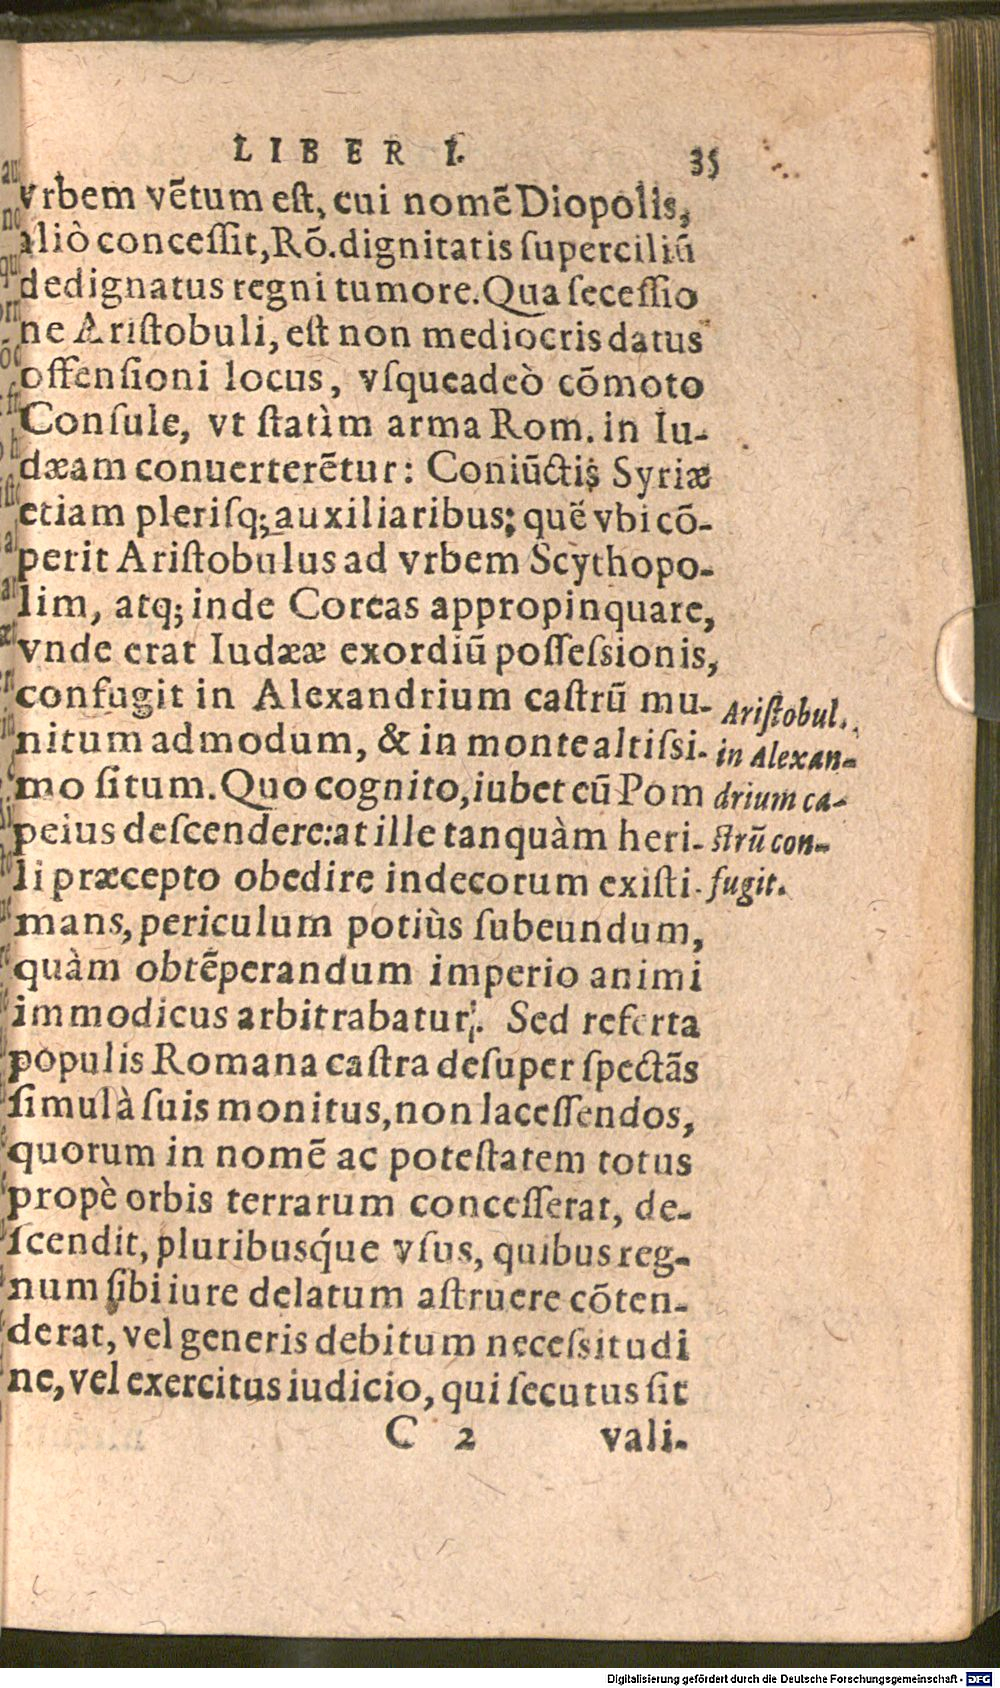 LIBER I. 35
vrbem vẽtum est, cui nomẽ Diopolis,
aliò concessit, Rõ. dignitatis superciliũ
dedignatus regni tumore. Qua secessio
ne Aristobuli, est non mediocris datus
offensioni locus, vsqueadeò cõmoto
Consule, vt statìm arma Rom. in Iu-
dæam conuerterẽtur: Coniũctis Syriæ
etiam plerisq; auxiliaribus; quẽ vbi cõ-
perit Aristobulus ad vrbem Scythopo-
lim, atq; inde Coreas appropinquare,
vnde erat Iudææ exordiũ possessionis,
confugit in Alexandrium castrũ mu-
nitum admodum, & in monte altissi-
mo situm. Quo cognito, iubet eũ Pom
peius descendere: at ille tanquàm heri-
li præcepto obedire indecorum existi-
mans, periculum potiùs subeundum,
quàm obtẽperandum imperio animi
immodicus arbitrabatur. Sed referta
populis Romana castra desuper spectãs
simulà suis monitus, non lacessendos,
quorum in nomẽ ac potestatem totus
propè orbis terrarum concesserat, de-
scendit, pluribusq́ue vsus, quibus reg-
num sibi iure delatum astruere cõten-
derat, vel generis debitum necessitudi
ne, vel exercitus iudicio, qui secutus sit
C 2 vali-
Aristobul.
in Alexan-
drium ca-
strũ con-
fugit.
Digitalisierung gefördert durch die Deutsche Forschungsgemeinschaft - DFG